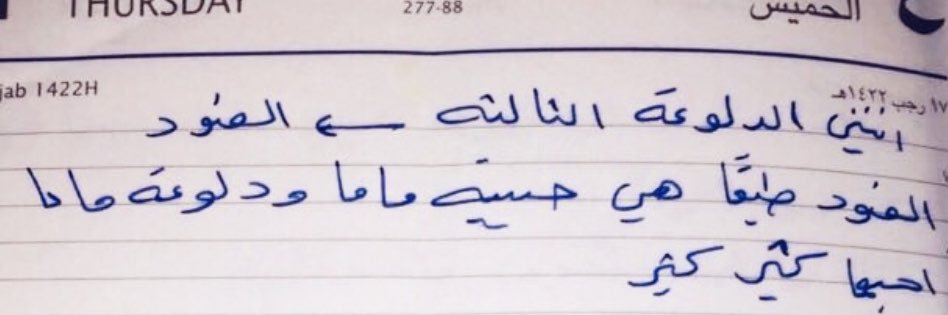 THURSDAY 277-88 الخميس
jab 1422H ١٧ رجب ١٤٢٢هـ
ابنتي الدلوعة الثالثه ← العنود
العنود طبعًا هي حبيبة ماما ودلوعة ماما
احبها كثير كثير